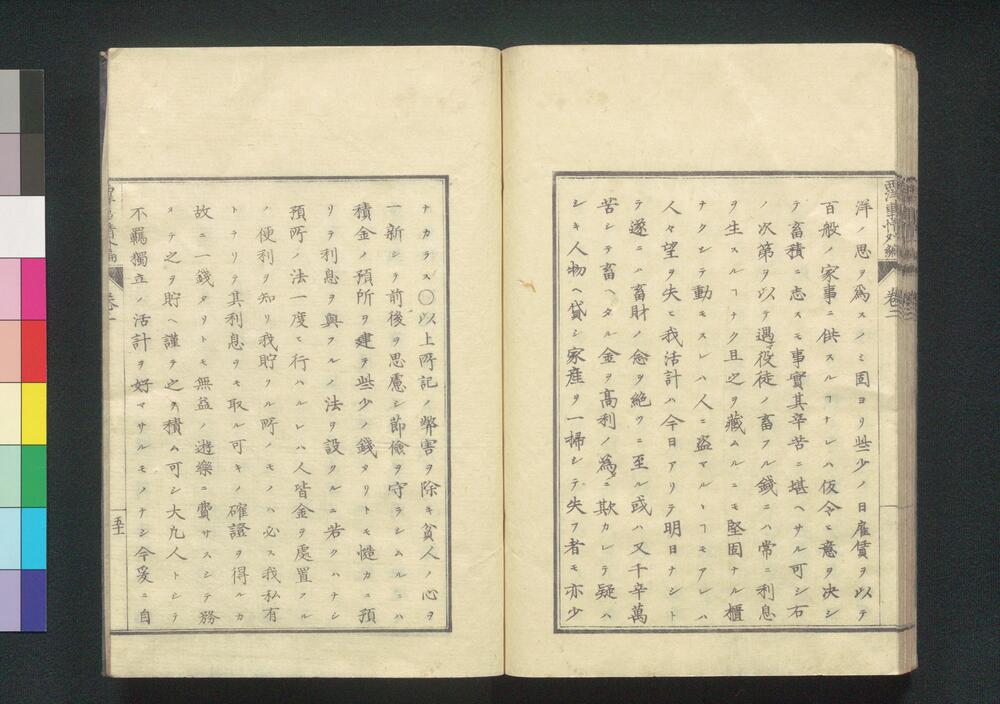 西洋事情外編 卷三
洋ノ思ヲ爲スノミ固ヨリ些少ノ日雇賃ヲ以テ
百般ノ家事ニ供スルヿナレハ仮令ヒ意ヲ决シ
テ畜積ニ志スモ事實其辛苦ニ堪ヘサル可シ右
ノ次第ヲ以テ遇〻役徒ノ畜フル錢ニハ常ニ利息
ヲ生スルヿナク且之ヲ藏ムルニモ堅固ナル櫃
ナクシテ動モスレハ人ニ盗マルヽヿモアレハ
人々望ヲ失ヒ我活計ハ今日アリテ明日ナシト
テ遂ニハ畜財ノ念ヲ絶ツニ至ル或ハ又千辛萬
苦シテ畜ヘタル金ヲ高利ノ爲ニ欺カレテ疑ハ
シキ人物ヘ貸シ家産ヲ一掃シテ失フ者モ亦少
ナカラス〇以上所記ノ弊害ヲ除キ貧人ノ心ヲ
一新シテ前後ヲ思慮シ節儉ヲ守ラシムルニハ
積金ノ預所ヲ建テ些少ノ錢タリトモ慥カニ預
リテ利息ヲ與フルノ法ヲ設クルニ若クハナシ
預所ノ法一度ヒ行ハルレハ人皆金ヲ處置スル
ノ便利ヲ知リ我貯フル所ノモノハ必ス我私有
トナリテ其利息ヲモ取ル可キノ確證ヲ得ルカ
故ニ一錢タリトモ無益ノ遊樂ニ費サスシテ務
メテ之ヲ貯ヘ謹テ之ヲ積ム可シ大凡人トシテ
不羈獨立ノ活計ヲ好マサルモノナシ今爰ニ自